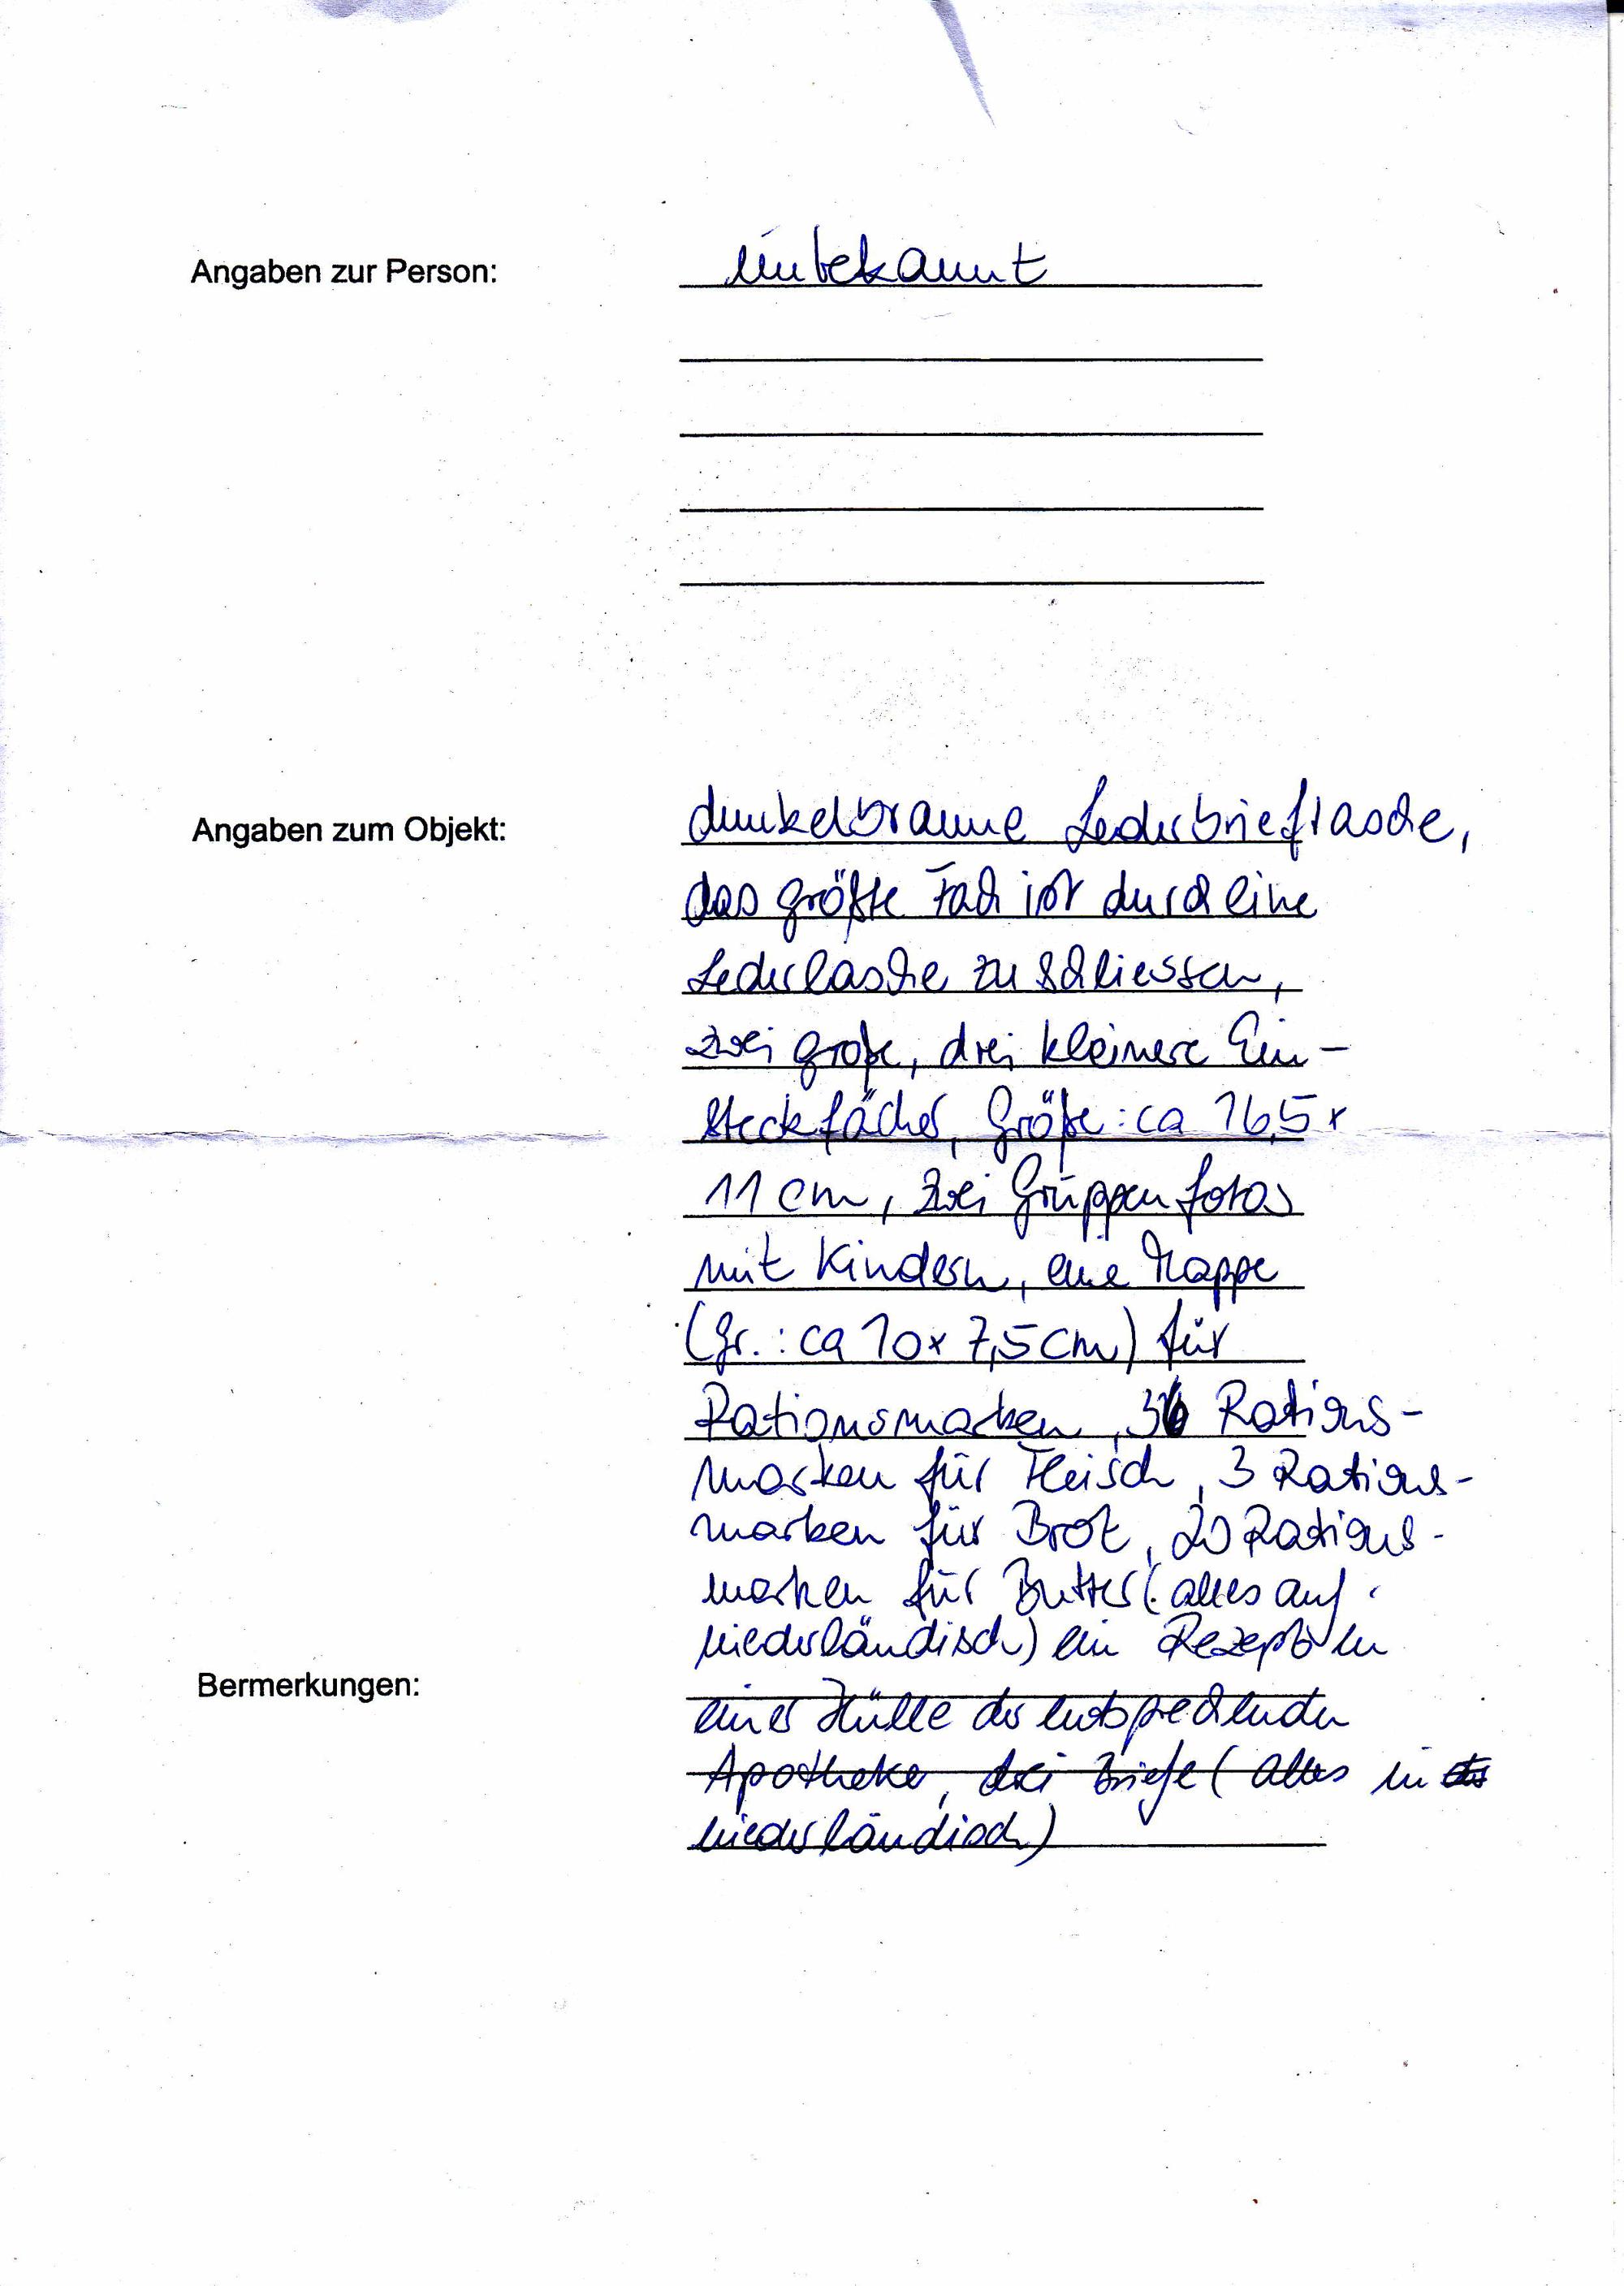 Angaben zur Person: unbekannt
Angaben zum Objekt: dunkelbraune Lederbrieftasche,
das größte Fach ist durch eine
Lederlasche zu schliessen,
zwei große, drei kleinere Ein-
steckfächer, Größe: ca 16,5 x
11 cm, zwei Gruppenfotos
mit Kindern, eine Mappe
(Gr.: ca 10 x 7,5 cm) für
Rationsmarken, 36 Rations-
marken für Fleisch, 3 Rations-
marken für Brot, 20 Rations-
marken für Butter (alles auf
niederländisch) ein Rezept in
Bermerkungen: einer Hülle der entsprechenden
Apotheke, drei Briefe (alles in
niederländisch)